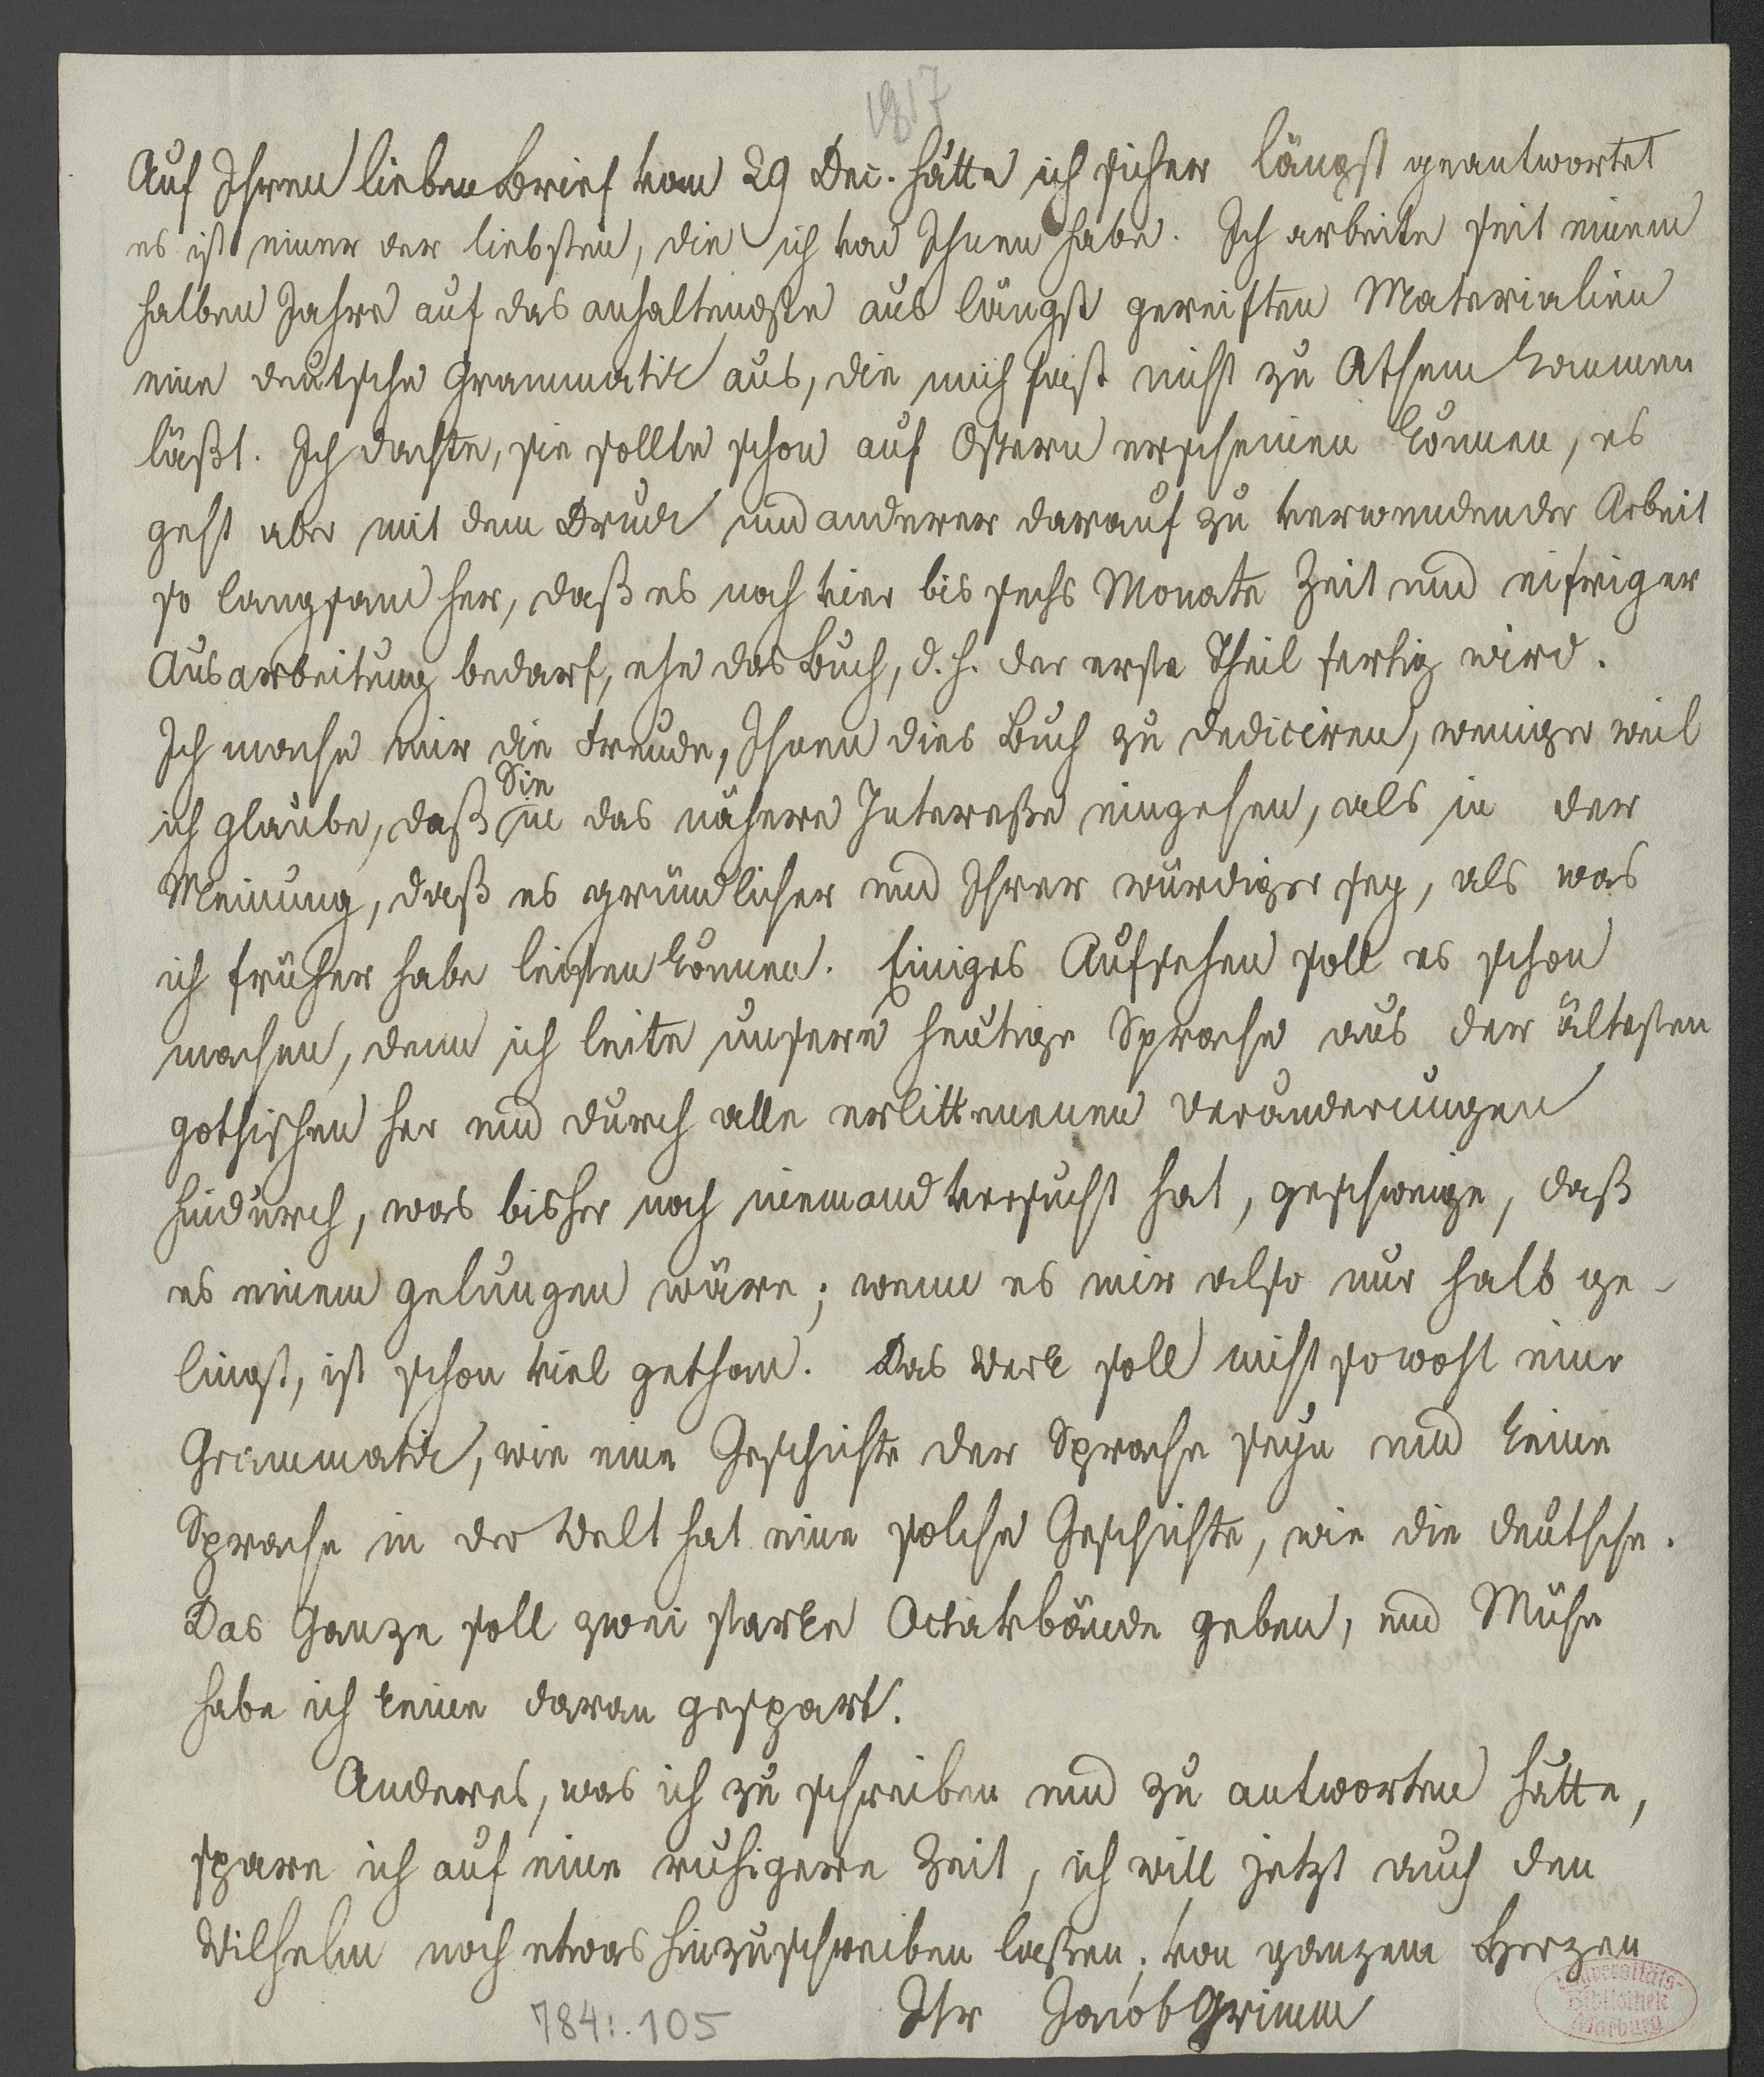 1817
Auf Ihren lieben Brief vom 29 Dec. hätte ich sicher längst geantwortet
es ist einer der liebsten, die ich von Ihnen habe. Ich arbeite seit einem
halben Jahre auf das anhaltendste aus längst gereiften Materialien
eine deutsche Grammatik aus, die mich fast nicht zu Athem kommen
läßt. Ich dachte, sie sollte schon auf Ostern erscheinen können, es
geht aber mit dem Druck und anderer darauf zu verwendender Arbeit
so langsam her, daß es noch vier bis sechs Monate Zeit und eifriger
Ausarbeitung bedarf, ehe das Buch, d. h. der erste Theil fertig wird.
Ich mache mir die Freude, Ihnen dies Buch zu dediciren, weniger weil
ich glaube, daß Sie in das nähere Intereße eingehen, als in der
Meinung, daß es gründlicher und Ihrer würdiger sey, als was
ich früher habe leisten können. Einiges Aufsehen soll es schon
machen, denn ich leite unsere heutige Sprache aus der ältesten
gothischen her und durch alle erlittenenen Veränderungen
hindurch, was bisher noch niemand versucht hat, geschweige, daß
es einem gelungen wäre; wenn es mir also nur halb ge-
lingt, ist schon viel gethan. Das Werk soll nicht sowohl eine
Grammatik, wie eine Geschichte der Sprache seyn und keine
Sprache in der Welt hat eine solche Geschichte, wie die deutsche.
Das Ganze soll zwei starke Octavbände geben, und Mühe
habe ich keine daran gespart.
Anderes, was ich zu schreiben und zu antworten hätte,
spare ich auf eine ruhigere Zeit, ich will jetzt auch den
Wilhelm noch etwas hinzuschreiben laßen; von ganzem Herzen
Ihr Jacob Grimm
784:.105
Universitäts-
Bibliothek
Marburg